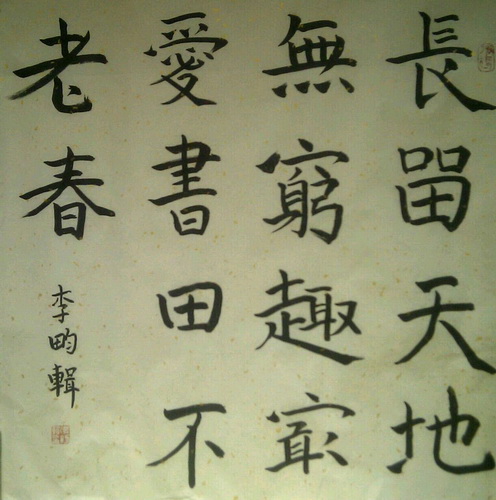 長留天地
無窮趣寂
愛書田不
老春
李畇輯